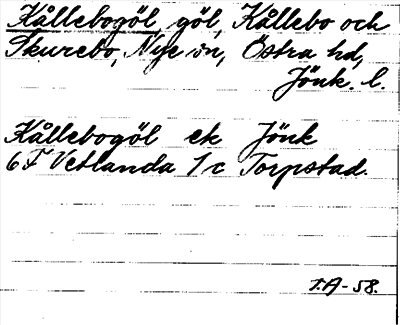 Kållebogöl, göl, Kållebo och
Skurebo, Nye sn, Östra hd,
Jönk. l.
Kållebogöl ek Jönk
6F Vetlanda 1c Torpstad.
T.A-58.